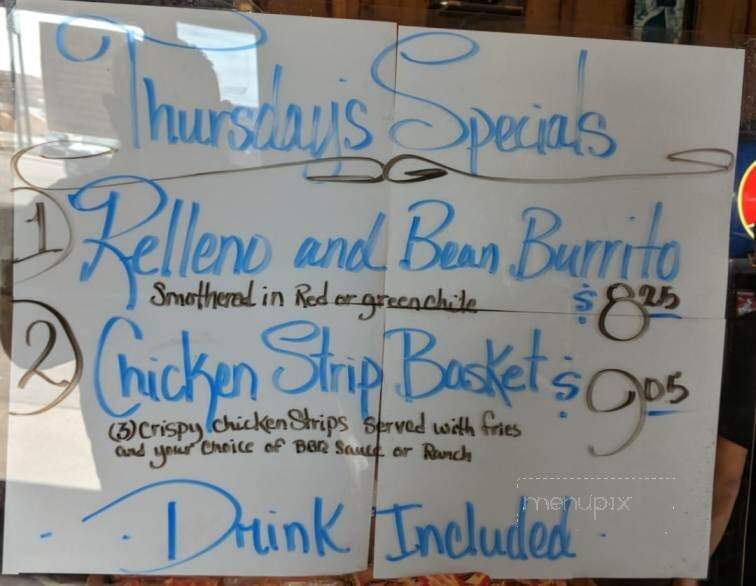 Thursday's Specials
1) Relleno and Bean Burrito
Smothered in Red or green chile $8.25
2) Chicken Strip Basket $9.05
(3) Crispy chicken Strips served with fries
and your choice of BBQ Sauce or Ranch
Drink Included
menupix